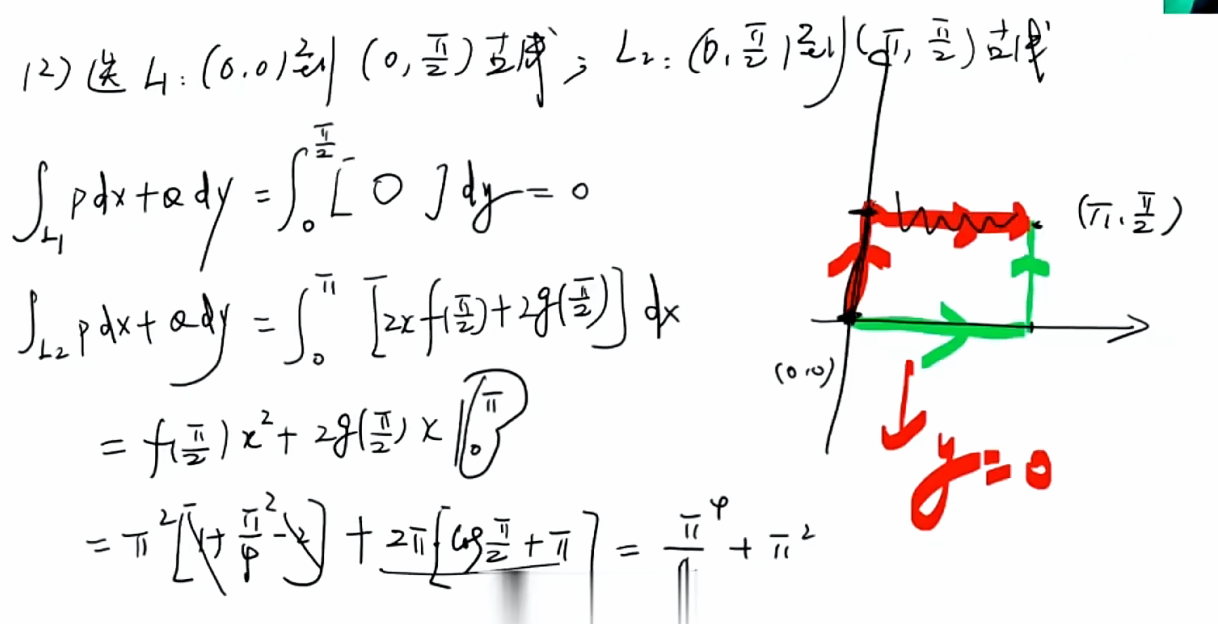 (2) 选 L₁: (0,0) 到 (0, π/2) 直线; L₂: (0, π/2) 到 (π, π/2) 直线
∫_{L₁} Pdx+Qdy = ∫₀^{π/2} [ 0 ] dy = 0
(π, π/2)
∫_{L₂} Pdx+Qdy = ∫₀^π [2x f(π/2)+2g(π/2)] dx
(0,0)
= f(π/2) x² + 2g(π/2) x |₀^π
y=0
= π² [1+ π²/4 -2] + 2π[cos π/2 + π] =
+ π²